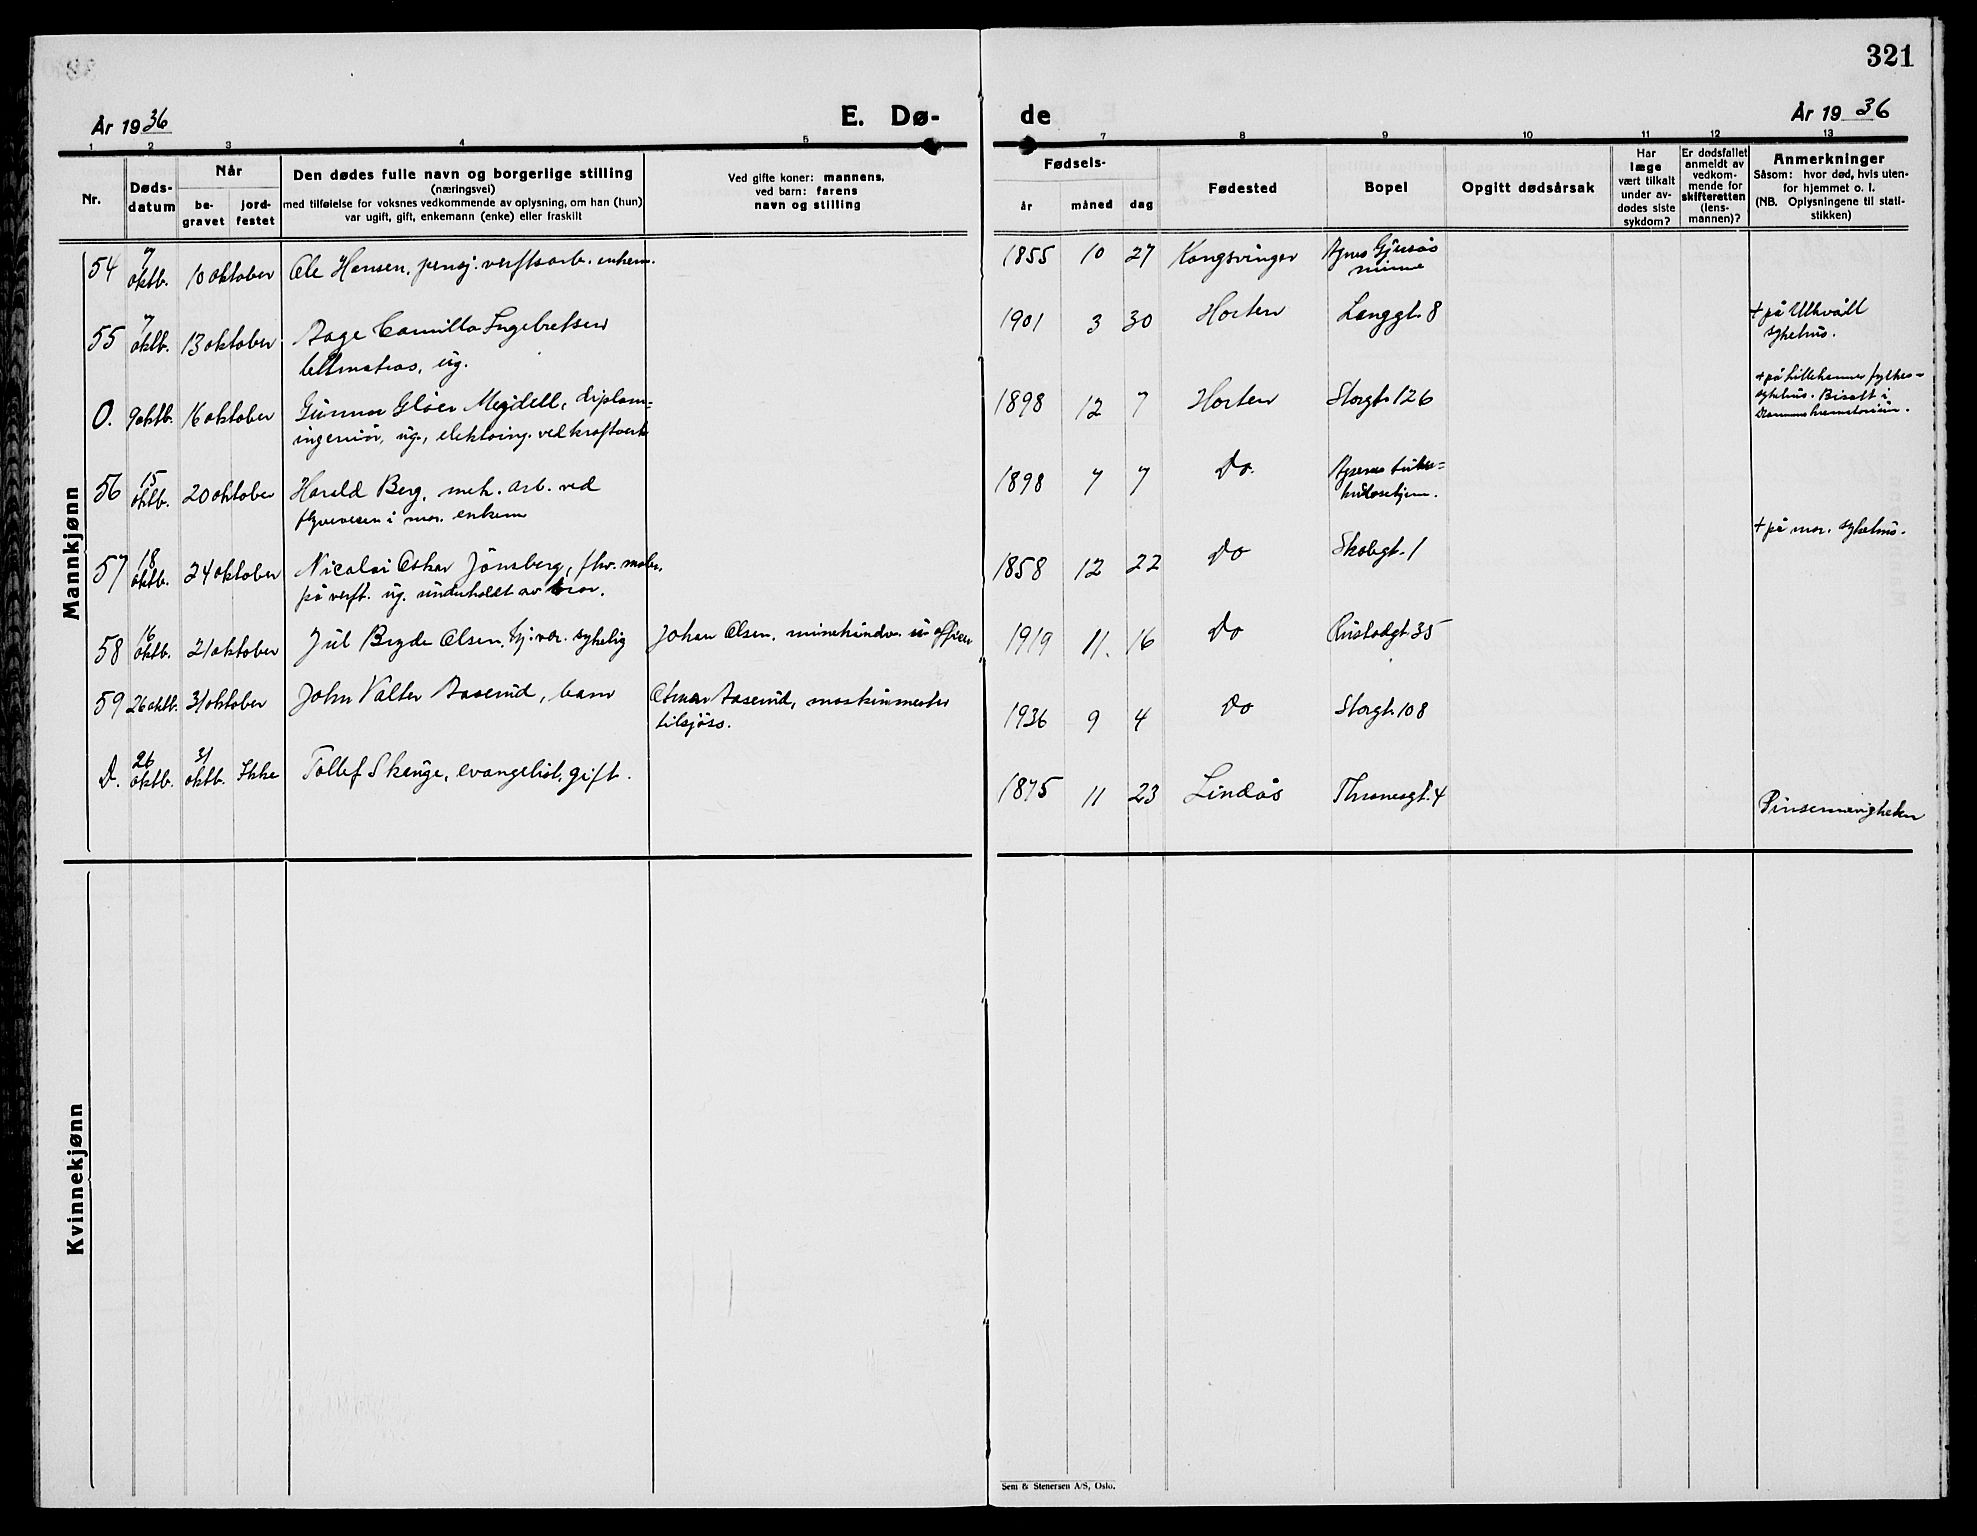 321
År 1936
E. Dø-
de
År 1936
1 2 3 4 5 7 8 9 10 11 12 13
Nr.
Døds-
datum
Når
be-
gravet
jord-
festet
Den dødes fulle navn og borgerlige stilling
(næringsvei)
med tilføielse for voksnes vedkommende av oplysning, om han (hun)
var ugift, gift, enkemann (enke) eller fraskilt
Ved gifte koner: mannens,
ved barn: farens
navn og stilling
Fødsels-
år måned dag
Fødested
Bopel
Opgitt dødsårsak
Har
læge
vært tilkalt
under av-
dødes siste
sykdom?
Er dødsfallet
anmeldt av
vedkom-
mende for
skifteretten
(lens-
mannen)?
Anmerkninger
Såsom: hvor død, hvis uten-
for hjemmet o. l.
(NB. Oplysningene til stati-
stikken)
Mannkjønn
54 7 oktb. 10 oktober Ole Hansen, pensj. verftsarb. enkem. 1855 10 27 Kongsvinger Agnes Gjersøs
minne
55 7 oktb. 13 oktober Aage Camillo Ingebretsen 1901 3 30 Horten Langgt. 8 + på Ullevåll
sykehus.
lettmatros, ug.
O. 9 oktb. 16 oktober Gunnar Gløer Mejdell, diplom= 1898 12 7 Horten Storgt. 126 + på Lillehammer fylkes=
sykehus. Bisatt i
Drammens krematorium.
ingeniør, ug., elektroing. ved kraftverk
56 15 oktb. 20 oktober Harald Berg, mek. arb. ved 1898 7 7 Do.
flyvevesen i mar. enkem
+ på mar. sykehus.
57 18 oktb. 24 oktober Nicolai Oskar Jönsberg, fhv. maler 1858 12 22 Do Skolegt. 1
på verft. ug. underholdt av bror.
58 16 oktb. 21 oktober Jul Bryde Olsen, hj. vær. sykelig Johan Olsen, minehåndv. u officer 1919 11. 16 Do Rustadgt. 35
59 26 oktb. 31 oktober John Valter Aaserud, barn Otmar Aaserud, maskinmester 1936 9 4 Do Storgt. 108
tilsjøss.
D. 26 oktb. 31 oktb. Ikke Tollef Skauge, evangelist, gift. 1875 11 23 Lindås Thranesgt. 4
Pinsemenigheten
Kvinnekjønn
Sem & Stenersen A/S, Oslo.